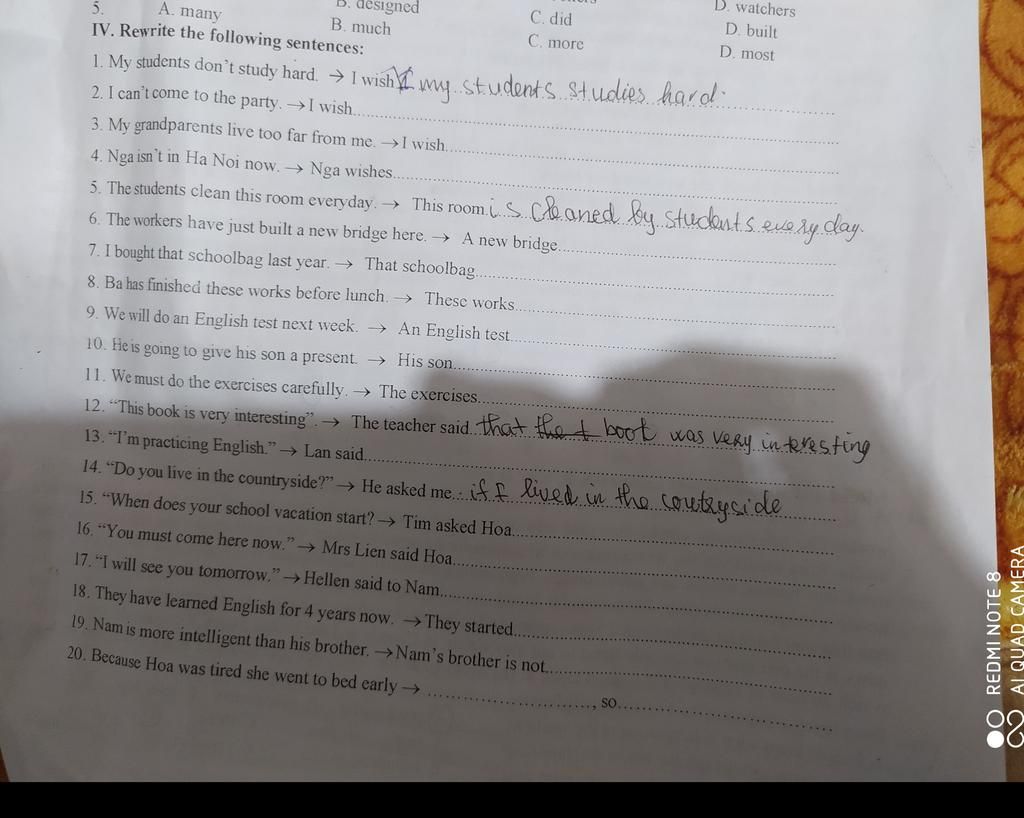 5. A. many B. much C. more D. most
B. designed C. did D. built
D. watchers
IV. Rewrite the following sentences:
1. My students don't study hard. → I wish my students studies hard.
2. I can't come to the party. → I wish
3. My grandparents live too far from me. → I wish
4. Nga isn't in Ha Noi now. → Nga wishes
5. The students clean this room everyday. → This room is cleaned by students every day.
6. The workers have just built a new bridge here. → A new bridge
7. I bought that schoolbag last year. → That schoolbag
8. Ba has finished these works before lunch. → These works
9. We will do an English test next week. → An English test
10. He is going to give his son a present. → His son
11. We must do the exercises carefully. → The exercises
12. "This book is very interesting". → The teacher said that the boot was very interesting
13. "I'm practicing English." → Lan said
14. "Do you live in the countryside?" → He asked me if I lived in the coutryside
15. "When does your school vacation start? → Tim asked Hoa
16. "You must come here now." → Mrs Lien said Hoa
17. "I will see you tomorrow." → Hellen said to Nam
18. They have learned English for 4 years now. → They started
19. Nam is more intelligent than his brother. → Nam's brother is not
20. Because Hoa was tired she went to bed early → ........................., so
REDMI NOTE 8
AI QUAD CAMERA